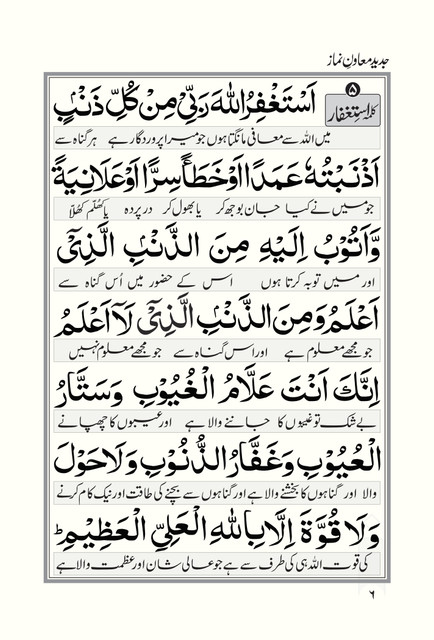 جدید معاونِ نماز
۵
کلمہ استغفار
اَسْتَغْفِرُ اللهَ رَبِّیْ مِنْ کُلِّ ذَنْۢبٍ
میں اللہ سے معافی مانگتا ہوں جو میرا پروردگار ہے ہر گناہ سے
اَذْنَبْتُهٗ عَمَدًا اَوْ خَطَأً سِرًّا اَوْ عَلَانِیَةً
جو میں نے کیا جان بوجھ کر یا بھول کر در پردہ یا کھلم کھلا
وَّاَتُوْبُ اِلَیْهِ مِنَ الذَّنْۢبِ الَّذِیْۤ
اور میں توبہ کرتا ہوں اس کے حضور میں اُس گناہ سے
اَعْلَمُ وَمِنَ الذَّنْۢبِ الَّذِیْ لَاۤ اَعْلَمُ
جو مجھے معلوم ہے اور اس گناہ سے جو مجھے معلوم نہیں
اِنَّکَ اَنْتَ عَلَّامُ الْغُیُوْبِ وَسَتَّارُ
بے شک تو غیبوں کا جاننے والا ہے اور عیبوں کا چھپانے
الْعُیُوْبِ وَغَفَّارُ الذُّنُوْبِ وَلَاحَوْلَ
والا اور گناہوں کا بخشنے والا ہے اور گناہوں سے بچنے کی طاقت اور نیک کام کرنے
وَلَا قُوَّةَ اِلَّا بِاللهِ الْعَلِیِّ الْعَظِیْمِ ؕ
کی قوت اللہ ہی کی طرف سے ہے جو عالی شان اور عظمت والا ہے
۶